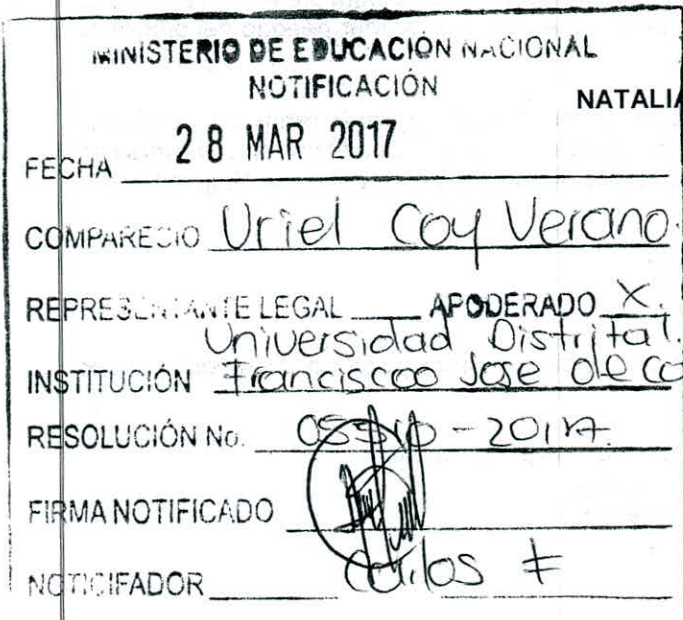 MINISTERIO DE EDUCACIÓN NACIONAL
NOTIFICACIÓN
NATALIA
FECHA 28 MAR 2017
COMPARECIO Uriel Coy Verano.
REPRESENTANTE LEGAL ____ APODERADO X.
Universidad Distrital.
INSTITUCIÓN Franciscoo Jose de Ca
RESOLUCIÓN No. - 2017.
FIRMA NOTIFICADO
NOTICIFADOR